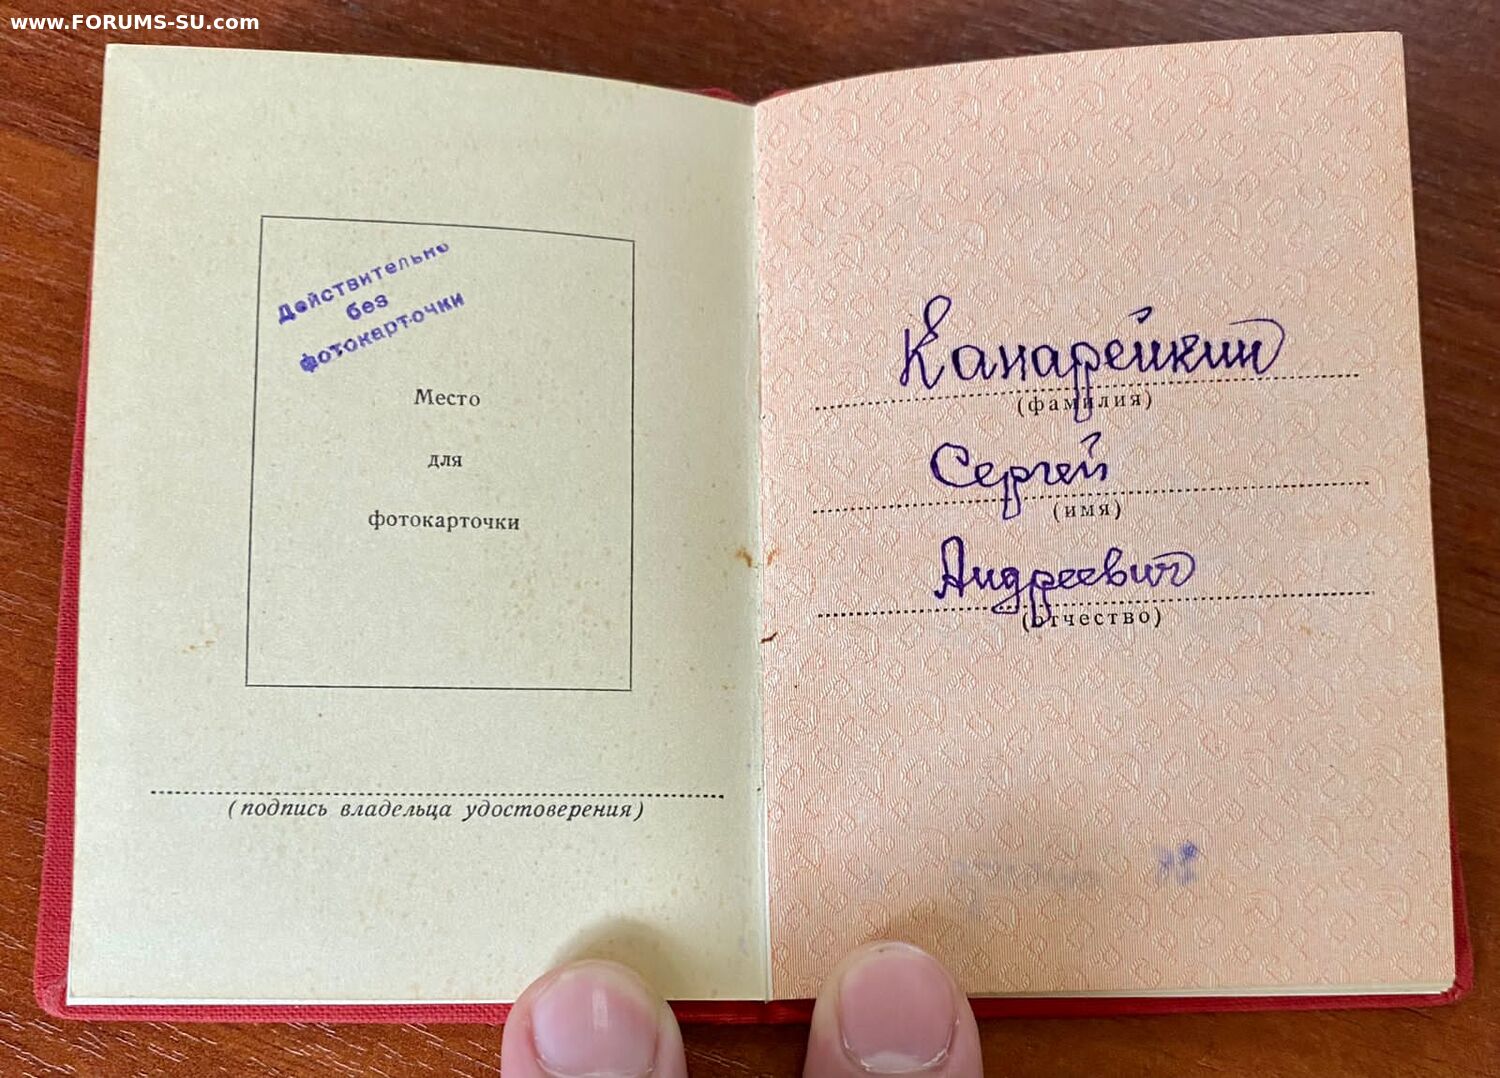 www.FORUMS-SU.com
Действительно
без
фотокарточки
Место
для
фотокарточки
(подпись владельца удостоверения)
Канарейкин
(фамилия)
Сергей
(имя)
Андреевич
(отчество)